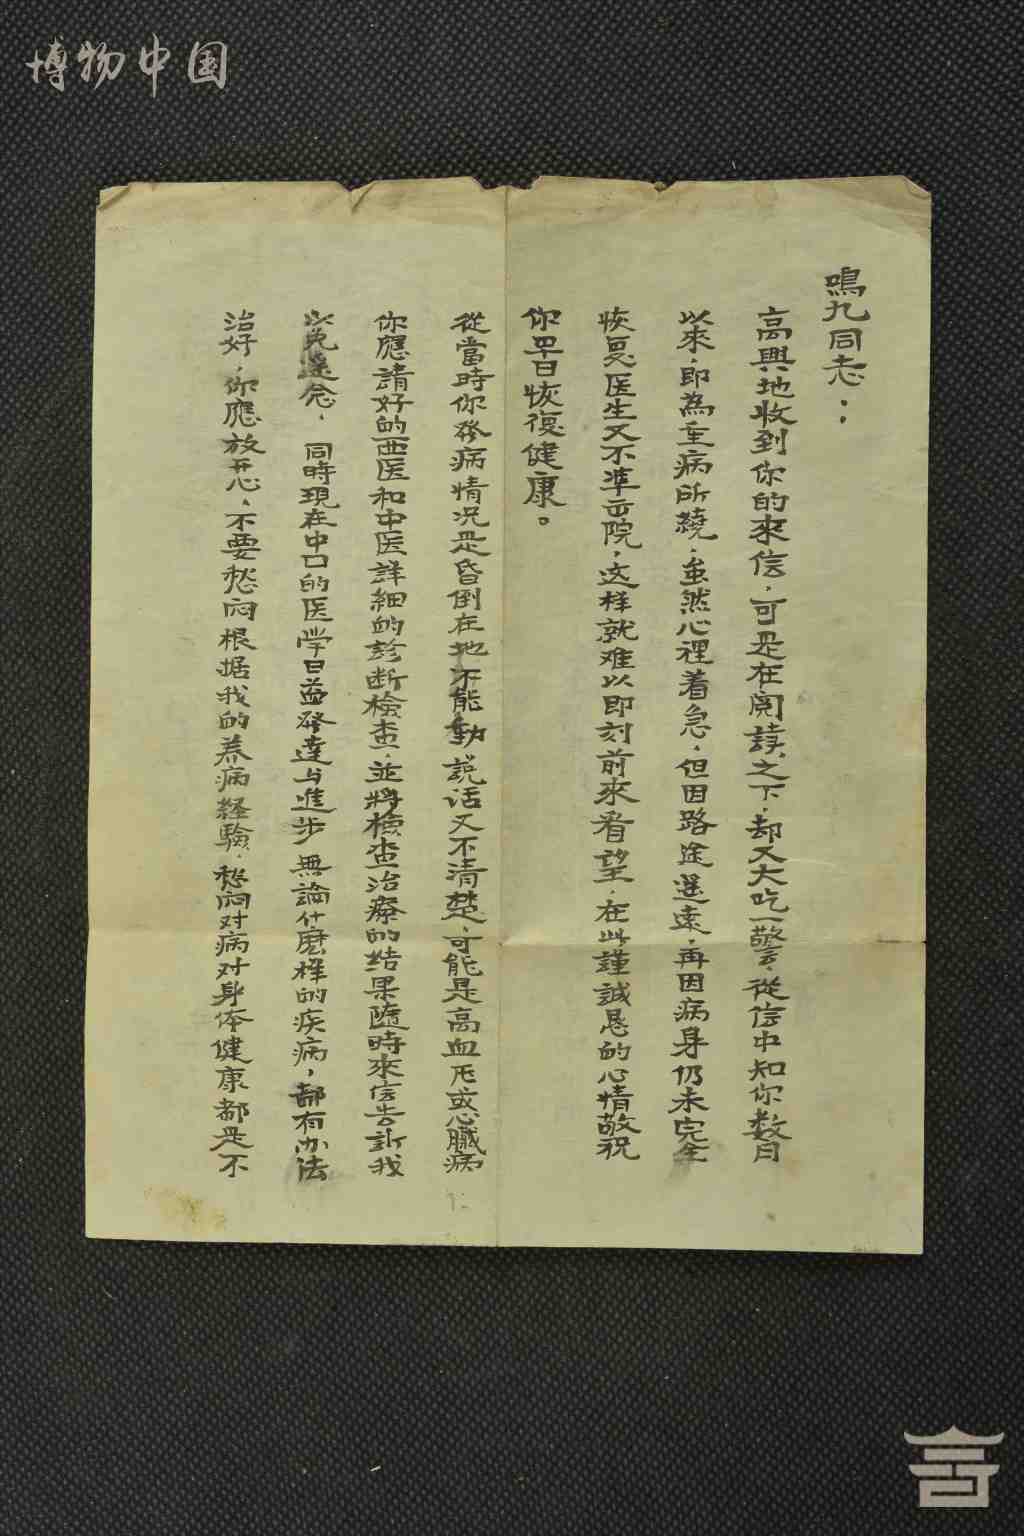 博物中国
鳴九同志：
高興地收到你的來信，可是在閱讀之下，却又大吃一驚，從信中知你数日
以來，即為重病所繞，虽然心裡着急，但因路途遥遠，再因病身仍未完全
恢复医生又不準出院，这样就难以即刻前來看望，在此謹誠恳的心情敬祝
你早日恢復健康。
從當時你發病情况是昏倒在地不能動說话又不清楚，可能是高血压或心臟病
你應請好的西医和中医詳細的診断檢查，並將檢查治療的结果隨時來信告訴我
以免遠念，同時現在中口的医学日益發達与進步無論什麽样的疾病，都有办法
治好，你應放开心，不要愁闷根据我的养病経驗，愁闷对病对身体健康都是不